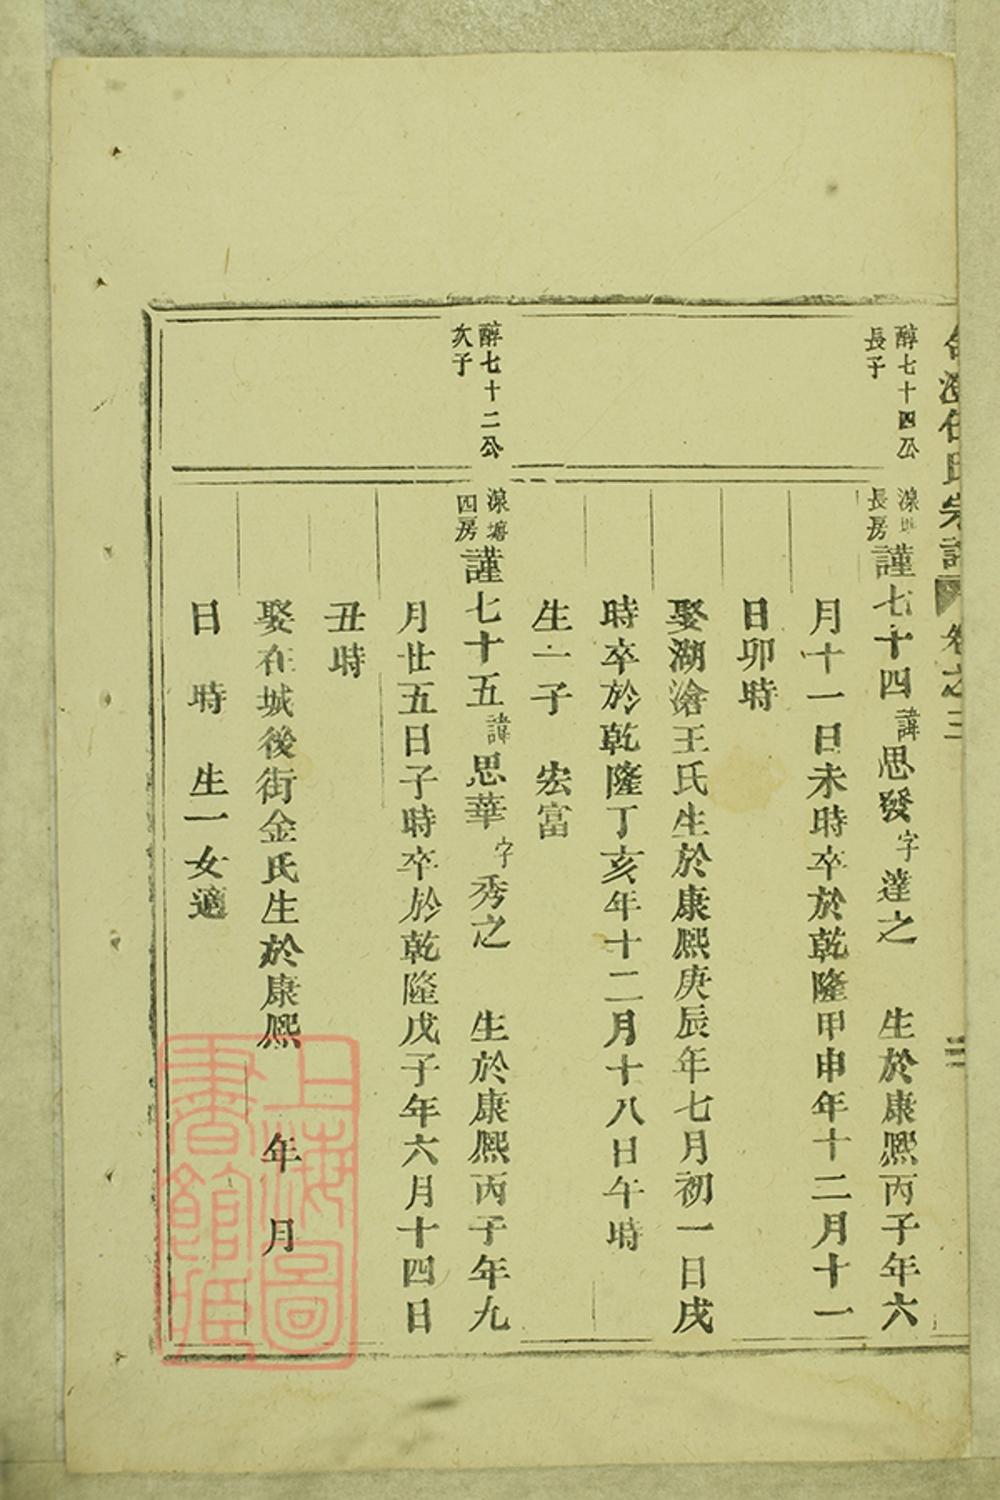 任氏宗譜 卷之三
醇七十四公
長子
長房
謹七十四諱思發字達之 生於康熙丙子年六
月十一日未時卒於乾隆甲申年十二月十一
日卯時
娶湖滄王氏生於康熙庚辰年七月初一日戌
時卒於乾隆丁亥年十二月十八日午時
生一子 宏富
醇七十二公
次子
四房
謹七十五諱思華字秀之 生於康熙丙子年九
月廿五日子時卒於乾隆戊子年六月十四日
丑時
娶在城後街金氏生於康熙 年 月
日 時 生一女適
上海圖
書館藏